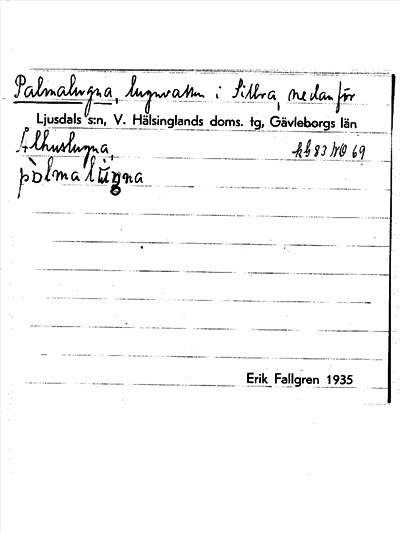 Palmalugna, lugnvatten i Sillra, nedanför
Ljusdals s:n, V. Hälsinglands doms. tg, Gävleborgs län
Älhuslugna, kb 83 NO 69
pàlmalùgna
Erik Fallgren 1935